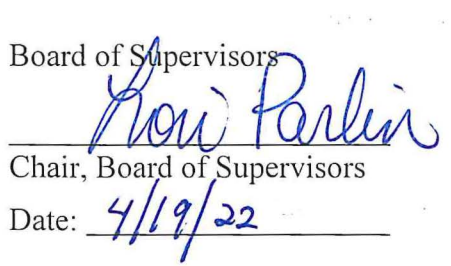 Board of Supervisors
Lori Parlin
Chair, Board of Supervisors
Date: 4/19/22